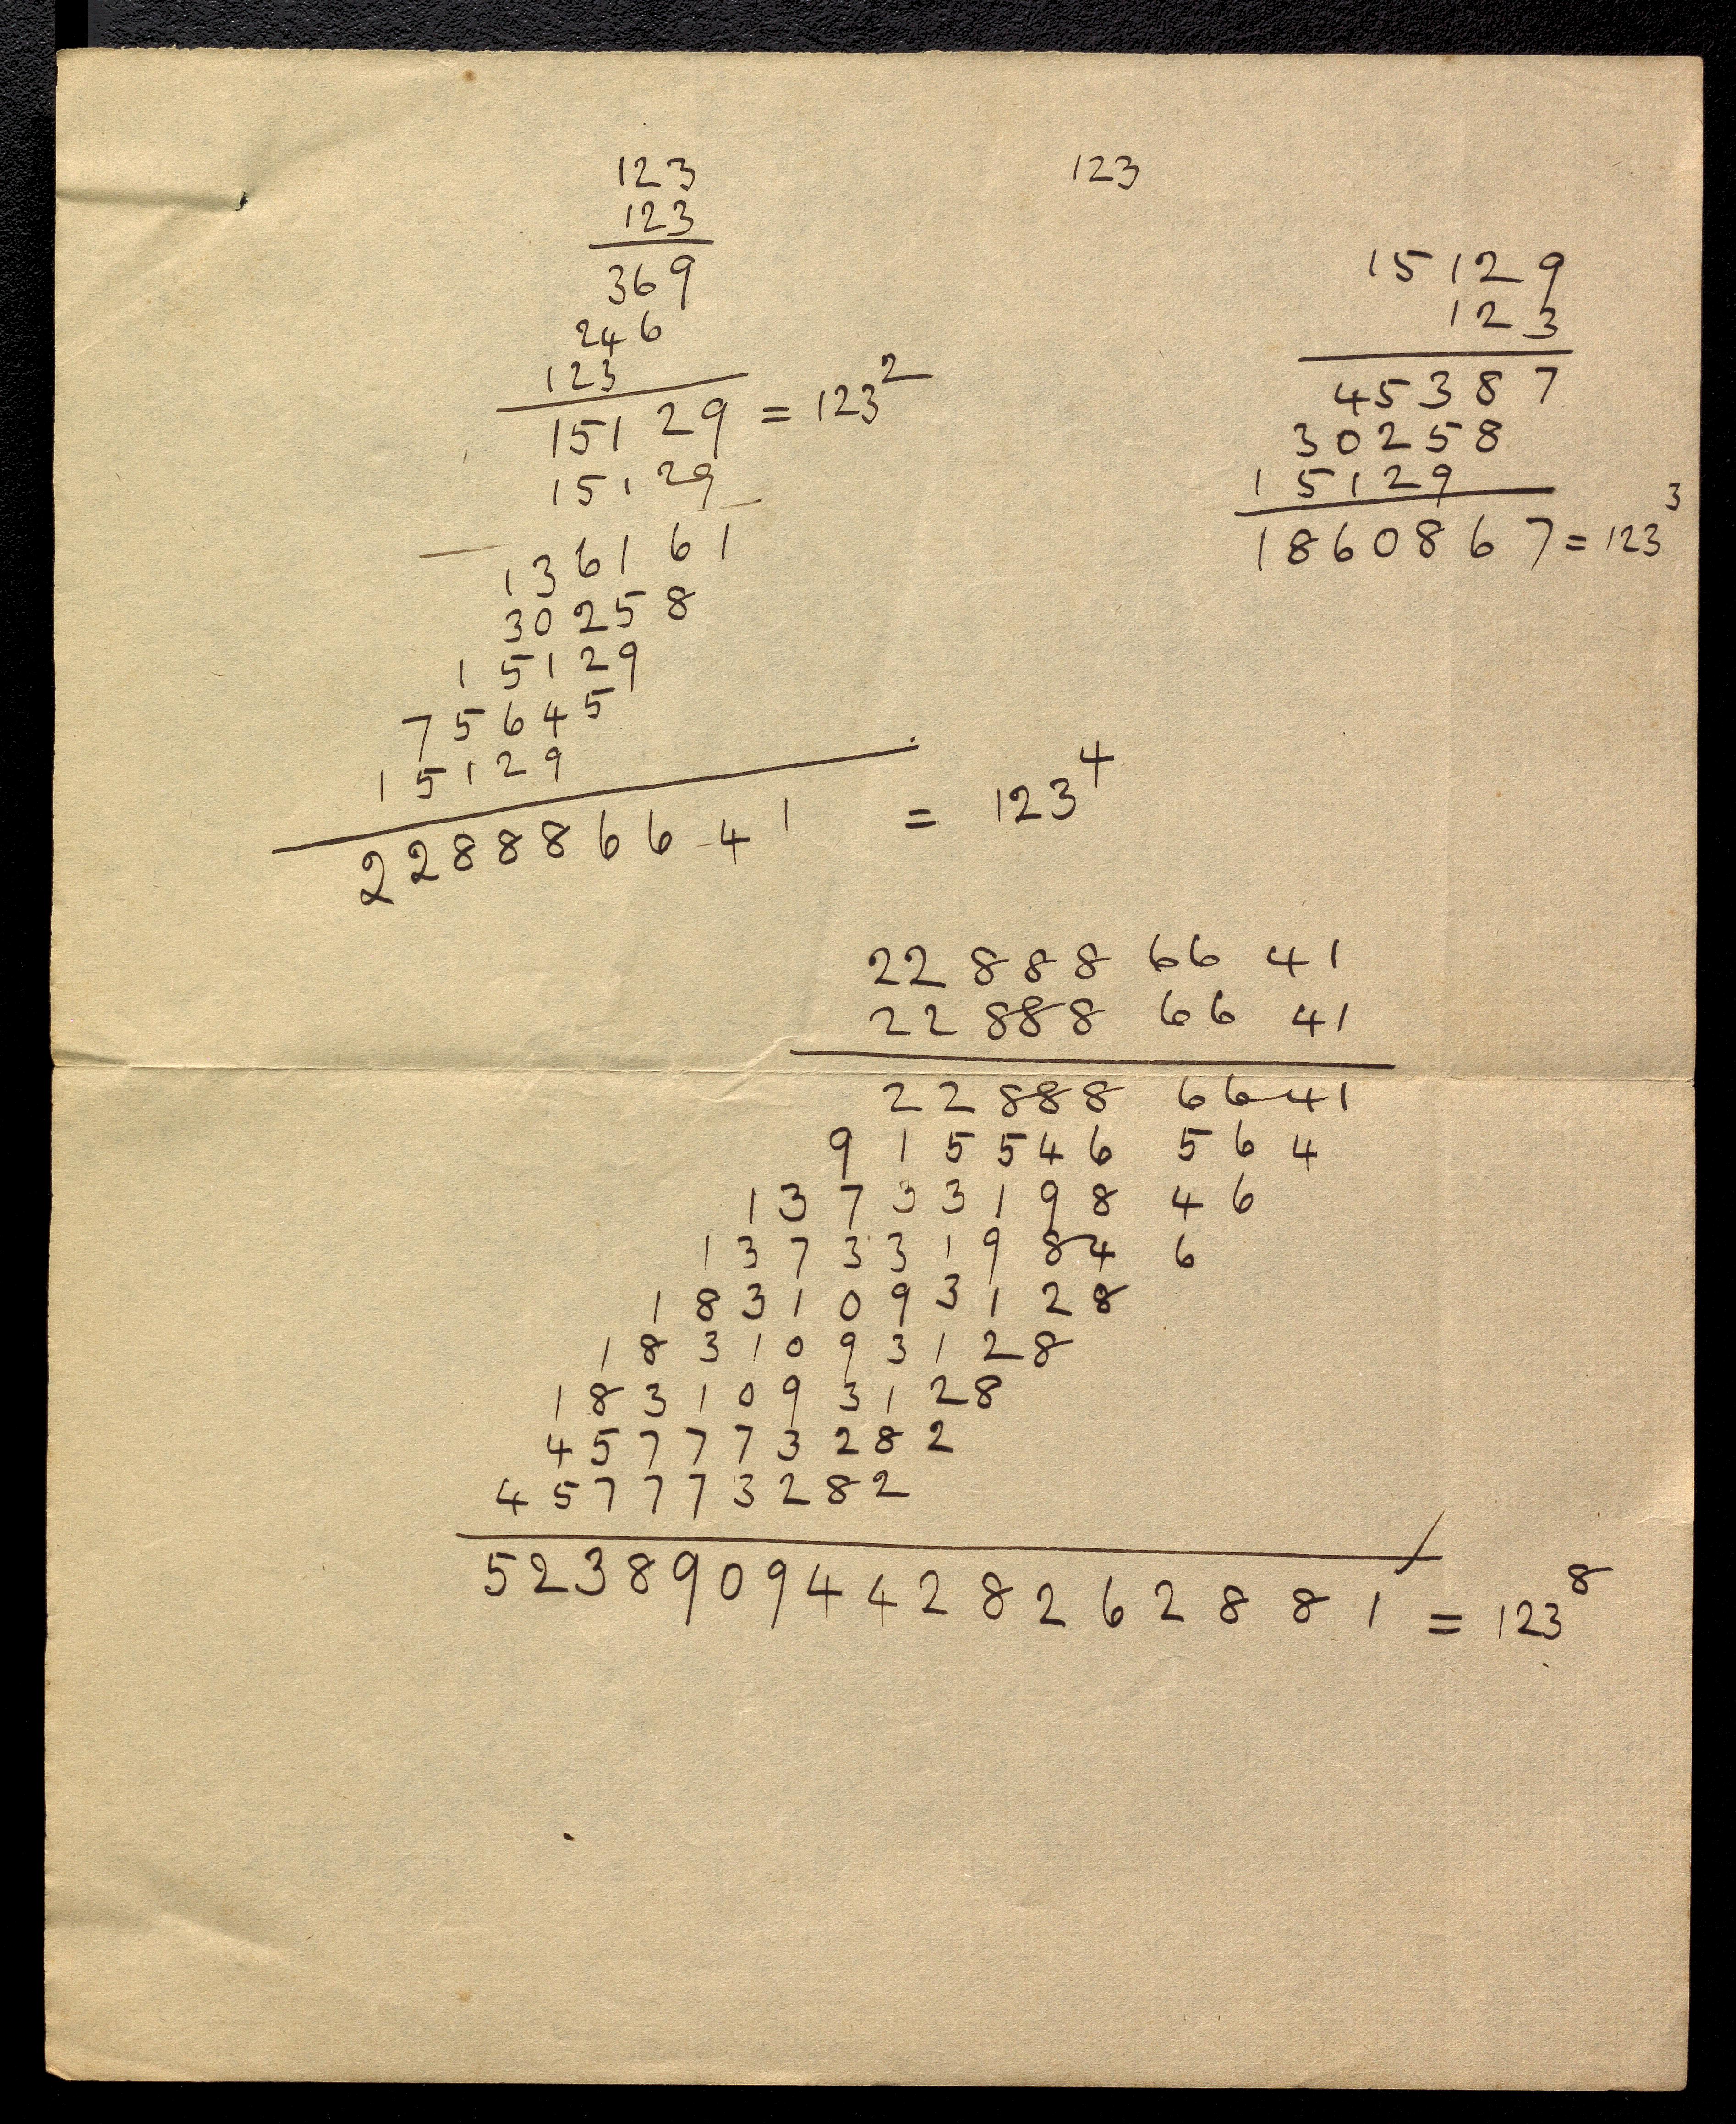 123
123
369
246
123
15129 = 123²
15129
136161
30258
15129
75645
15129
228886641 = 123⁴
123
15129
123
45387
30258
15129
1860867 = 123³
22888 66 41
22888 66 41
22888 6641
915546 564
13733198 46
137331984 6
1831093128
1831093128
1831093128
457773282
457773282
52389094428262881 = 123⁸